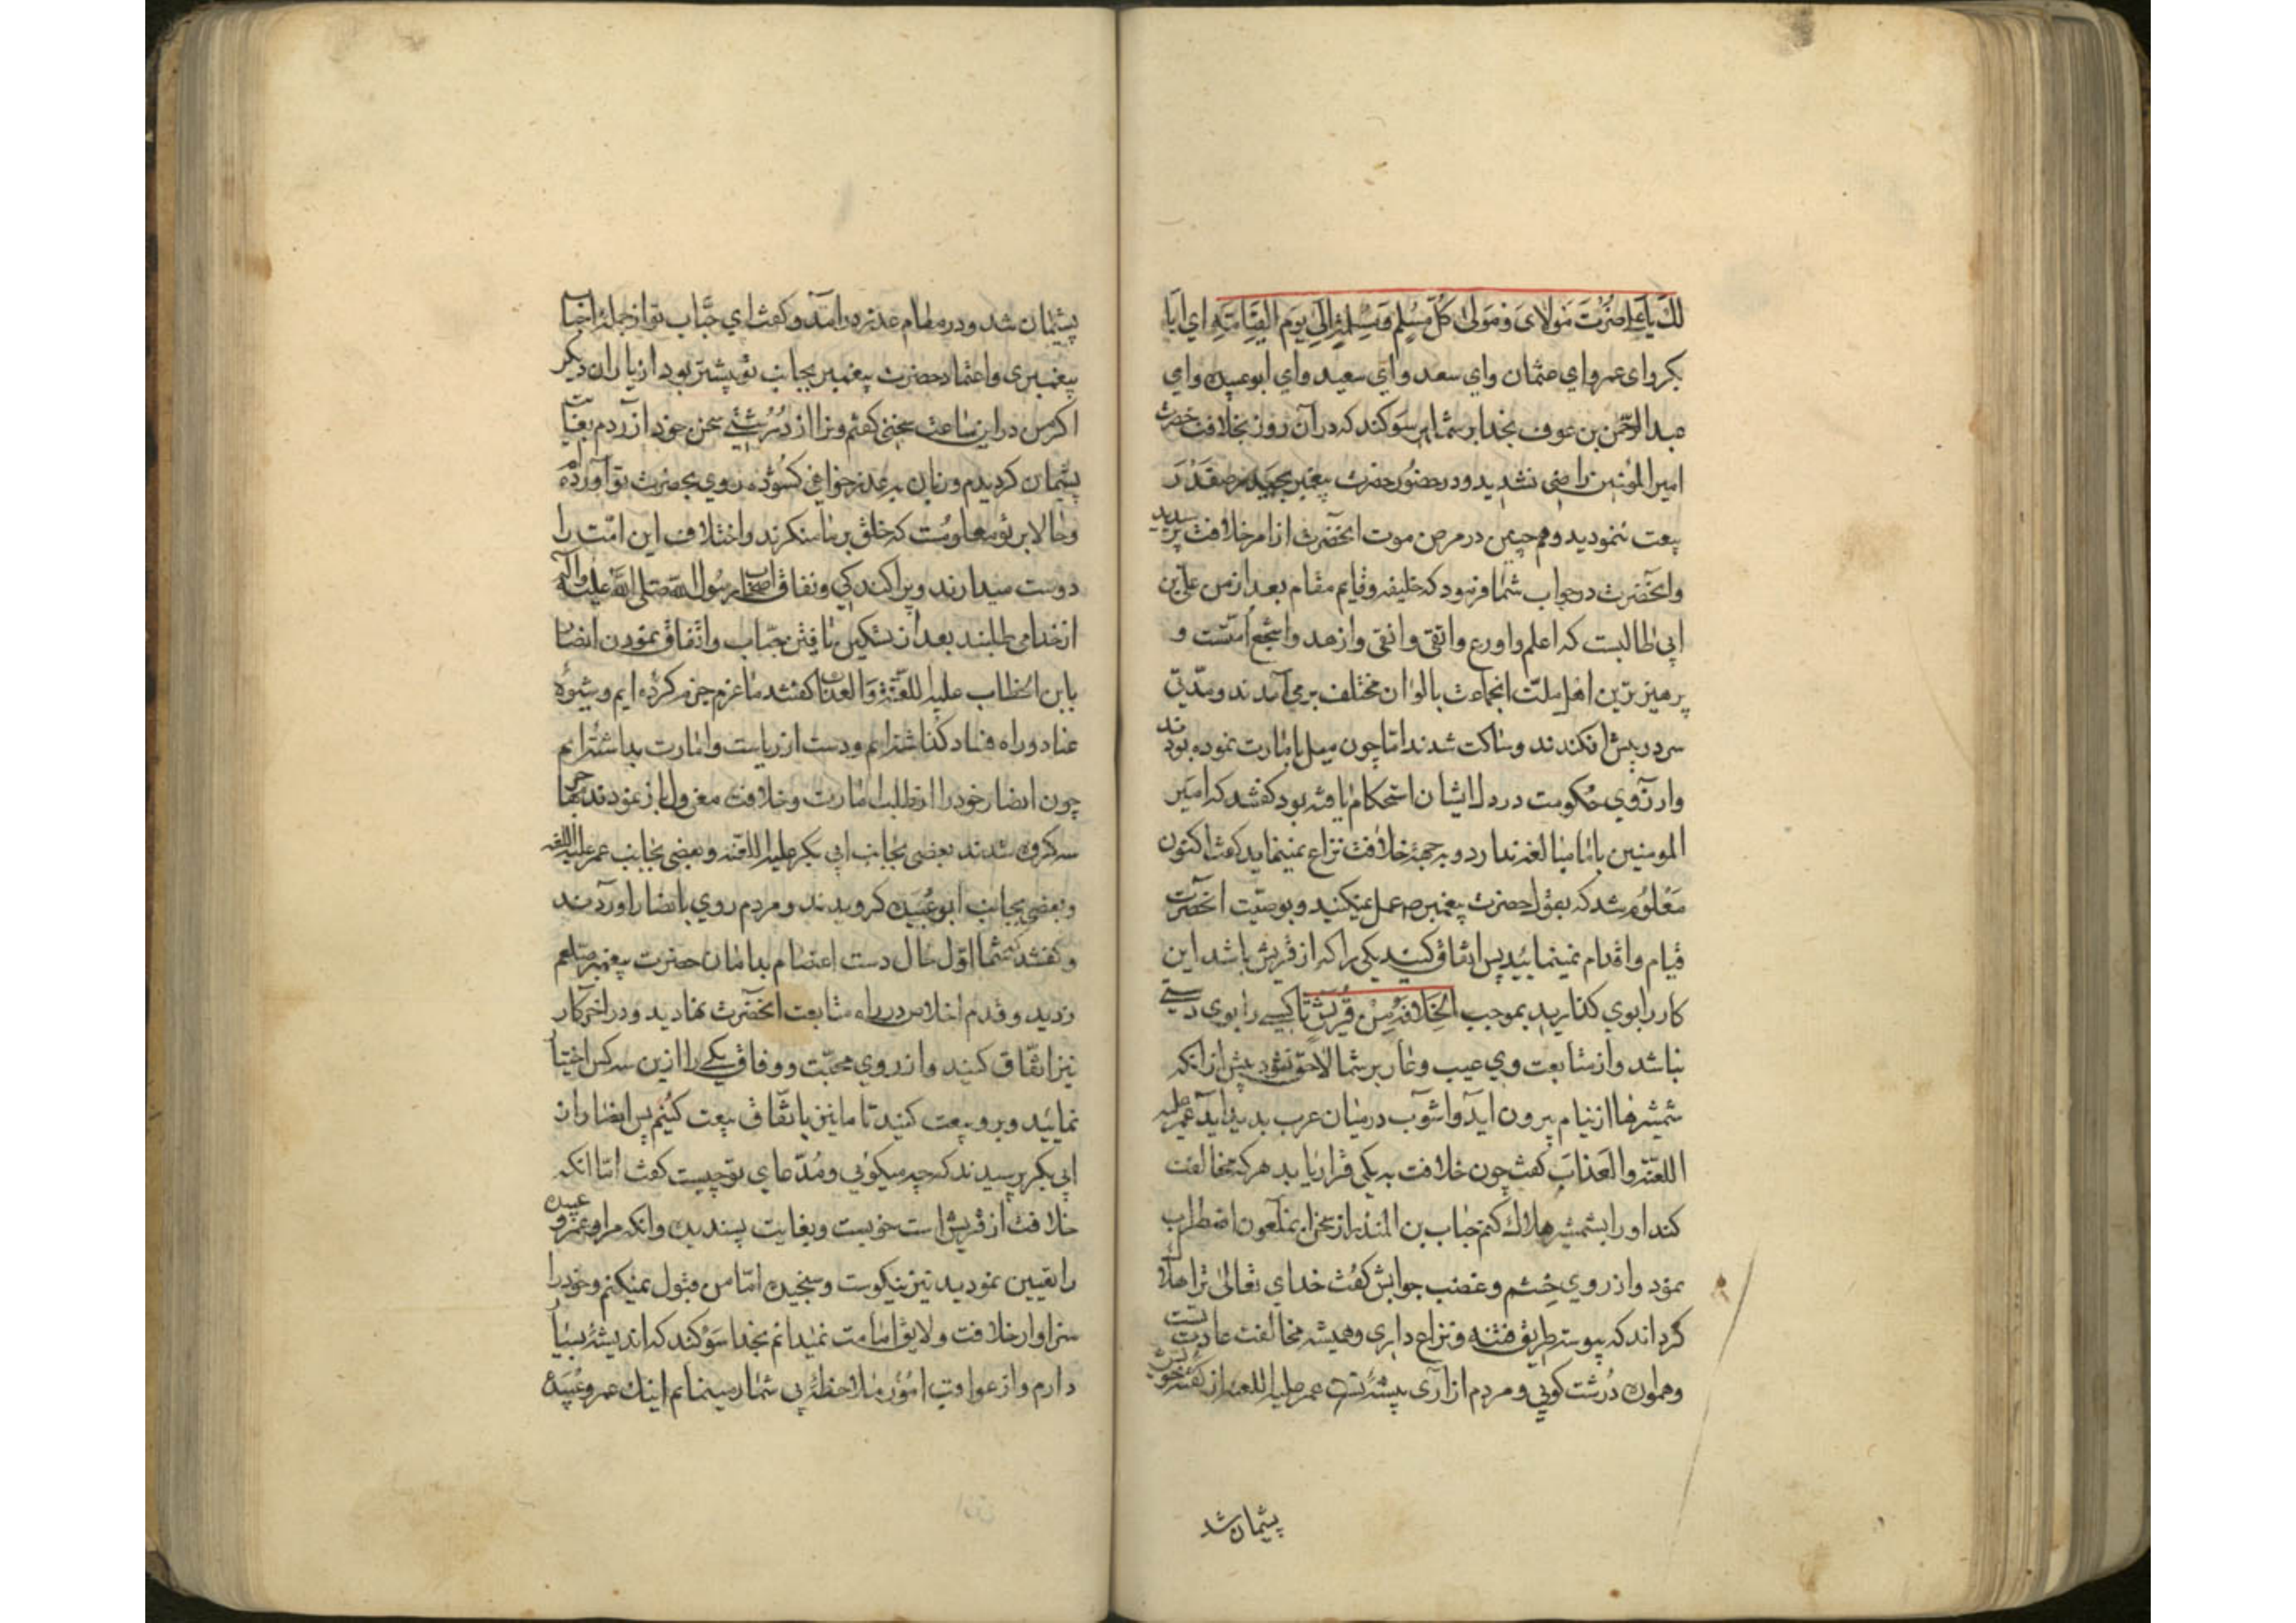 لك یا علی اصبحت مولای و مولی کل مسلم و مسلمة الی یوم القیامة ای ابا
بکر و ای عمر و ای عثمان و ای سعد و ای سعید و ای ابو عبیده و ای
عبد الرحمن بن عوف بخدا بر شما سوکند که در آن روز بخلافت حضرت
امیر المؤمنین راضی نشدید و در حضور حضرت پیغمبر
بیعت ننمودید و همچنین در مرض موت انحضرت از امر خلافت پرسیدید
و انحضرت در جواب شما فرمود که خلیفه و قایم مقام بعد از من علی بن
ابی طالبست که اعلم و اورع و اتقی و انقی و ازهد و اشجع امتست و
پرهیزترین اهل ملت انجماعت بالوان مختلف برمی آمدند و مدتی
سر در پیش افکندند و ساکت شدند اما چون میل بامارت نموده بودند
و ارزوی حکومت در دل ایشان استحکام یافته بود کفتند که امیر
المومنین با ما مبالغه ندارد و به جهة خلافت نزاع نمینماید کفت اکنون
معلوم شد که بقول حضرت پیغمبر ص عمل نمیکنید و بوصیت انحضرت
قیام و اقدام نمینمائید پس اتفاق کنید یکی را که از قریش باشد این
کار را بوی کذارید بموجب الخلافة من قریش تا کسی را بوی دستی
نباشد و از متابعت وی عیب و عار بر شما لاحق نشود پیش از انکه
شمشیرها از نیام بیرون اید و اشوب در میان عرب بدید اید عمر علیه
اللعنة و العذاب کفت چون خلافت به یکی قرار یابد هر که مخالفت
کند او را بشمشیر هلاك کنم حباب بن المنذر از سخن ان ملعون اضطراب
نمود و از روی خشم و غضب جوابش کفت خدای تعالی ترا هلاك
کرداند که پیوسته طریق فتنه و نزاع داری و همیشه مخالفت عادت تست
و هموان درشت کویی و مردم ازاری پیشهٔ تست عمر علیه اللعنه از کفته خویش
پشیمان شد
پشیمان شد و در مقام عذر درآمد و کفت ای حباب تو از جمله احباب
پیغمبری و اعتماد حضرت پیغمبر بجانب تو بیشتر بود از یاران دیکر
اکر من در این ساعت سخنی کفتم و ترا از درشتی سخن خود ازردم بغایت
پشیمان کردیدم و زبان به عذر خواهی کشوده روی بحضرت تو آورده ام
و حالا بر تو معلومست که خلق بر ما منکرند و اختلاف این امت را
دوست میدارند و پراکندکی و نفاق اصحاب رسول الله صلی الله علیه و آله
از خدا می طلبند بعد از تسکین یافتن حباب و اتفاق نمودن انصار
بابن الخطاب علیه اللعنة و العذاب کفتند ما عزم جزم کرده ایم و شیوهٔ
عناد و راه فساد کذاشته ایم و دست از ریاست و امارت بداشته ایم
چون انصار خود را از طلب امارت و خلافت معزول باز نمودند
سه کروه شدند بعضی بجانب ابی بکر علیه اللعنه و بعضی بجانب عمر علیه اللعنه
و بعضی بجانب ابو عبیده کرویدند و مردم روی بانصار اوردند
و کفتند که شما اول حال دست اعتصام بدامان حضرت پیغمبر صلعم
زدید و قدم اخلاص در راه متابعت انحضرت نهادید و در اخر کار
نیز اتفاق کنید و از روی محبت و وفاق یکی را ازین سه کس اختیار
نمایید و برو بیعت کنید تا ما نیز باتفاق بیعت کنیم پس انصار از
ابی بکر پرسیدند که چه میکوئی و مدعای تو چیست کفت اما انکه
خلافت از قریش است خوبست و بغایت پسندیده و انکه مرا و عمر و عبیده
را تعیین نمودید نیز نیکوست و سنجیده اما من قبول نمیکنم و خود را
سزاوار خلافت و لایق امامت نمیدانم بخدا سوکند که اندیشهٔ بسیار
دارم و از عواقب امور ملاحظهٔ بی شمار مینمایم اینك عمر و عبیده